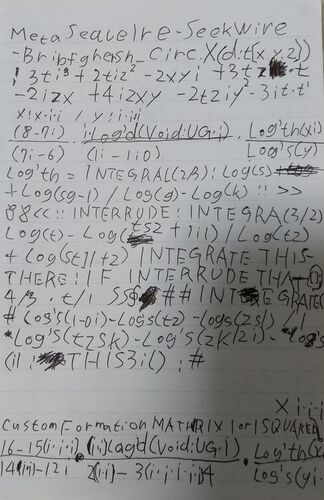 MetaSeaUelre-SeekWire
-Bribfghash_Circ.X(d:t[x,y,z])
! 3ti³ + 2tiz² - 2xyi + 3tz t
-2izx + 4izxy - 2tziy² - 3it·t'
x!x·i·i / y!i·i·i
(8-7i) i·Log'd(Void:UG·i) Log'th(xi)
(7i-6) (1i-1i0) Log's(y)
Log'th = INTEGRAL(2/3): Log(s)
+ Log(sg-1) / Log(g) - Log(k) !! >>
88<< !! INTERRUDE: INTEGRA(3/2)
Log(t) - Log( ts2 + 1i1) / Log(t2)
+ Log(st]1+2) INTEGRATE THIS-
THERE: IF INTERRUDE THAT
4/3. t/1 SS ## INTEGRATE
# Log's(1-0i) - Logs(t2) - Logs(2s) /
Log's(t2sk) - Log's(2k/2i) - Log's
(i1 THIS3i() : #
X i:i:i
CUSTOM FORMATION MATHRIX 1 or 1 SQUARED
16-15(i·i·i) · (i·i)Lag'd(Void:UG·i) · Log'th(x
14(i1)-12i 2(i·i) - 3(i·i·i·i)4 Log's(yi